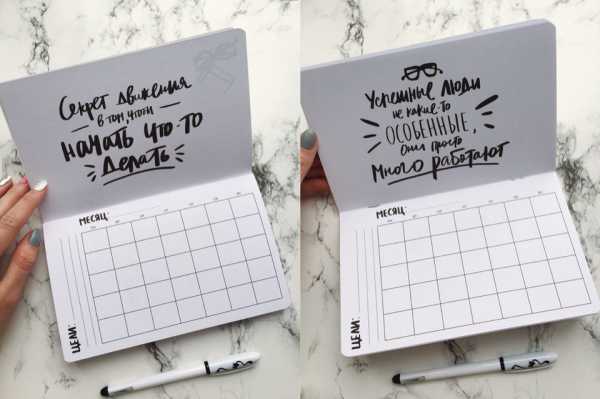 Секрет движения
в том, чтоби
начать что-то
делать
МЕСЯЦ:
ЦЕЛИ:
Успешные люди
не какие-то
особенные,
Они просто
много работают
МЕСЯЦ:
ЦЕЛИ: